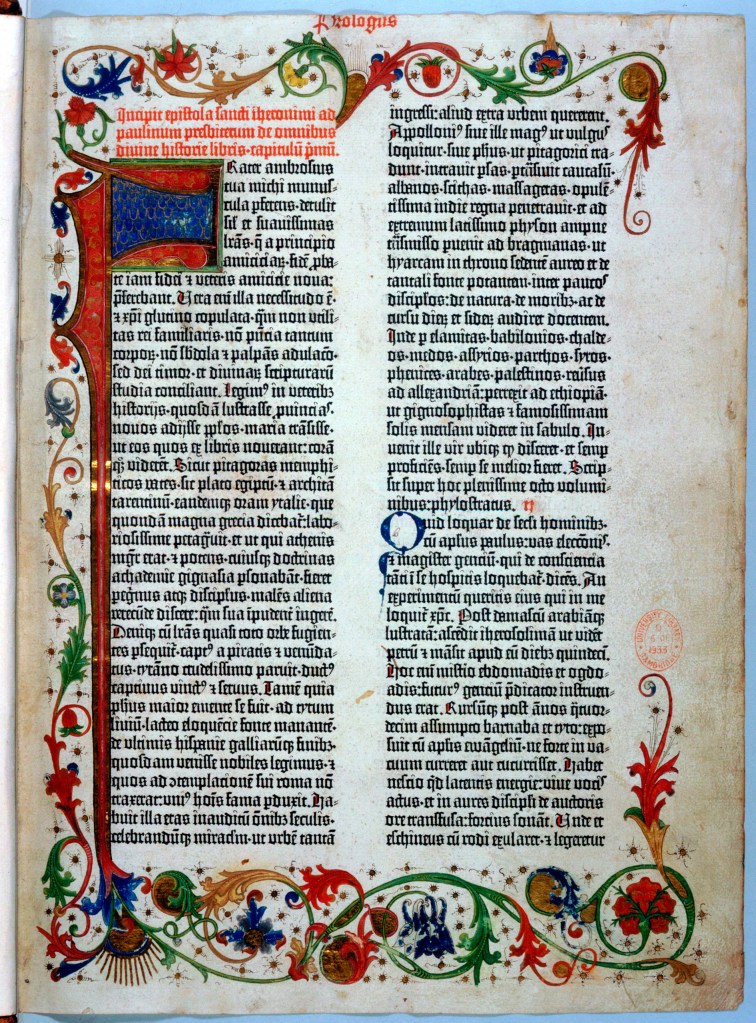 Prologus
Incipit epistola sancti iheronimi ad
paulinum presbiterum de omnibus
divine historie libris. capitulū p̄mū.
Frater ambrosius
tua michi munus-
cula ꝑferens. detulit
sil' et suavissimas
lr̄as. q̄ a principio
amiciciaꝝ. fidē ꝓba-
te iam fidei ⁊ veteris amicicie nova:
p̄ferebant. Vera em̄ illa necessitudo ē.
⁊ xp̄i glutino copulata. qm̄ non utili-
tas rei familiaris. nō p̄ncia tantum
corpoꝝ. nō sb̄dola ⁊ palpās adulacō.
sed dei timor. et divinaꝝ scripturarū
studia conciliant. Legimꝰ in veteribꝫ
historijs. quosdā lustrasse ꝓuincias.
novos adijsse ppl̓os. maria trāsisse.
ut eos quos ex libris noverant: corā
qꝫ viderēt. Sicut pitagoras memphi-
ticos vates. sic plato egiptū. ⁊ architā
tarentinū. eandemqꝫ oram ytalie. que
quondā magna grecia dicebat̄: labo-
riosissime peragͥvit. et ut qui athenis
mgr̄ erat. ⁊ potens. cuiusqꝫ doctrinas
achademie gignasia ꝑsonabāt. fieret
peg̓nus atqꝫ discipl̓us. malēs aliena
verecūde discere: qm̄ sua īpudent̄ ingerē.
Deniqꝫ cū lr̄as quasi toto orbe fugien-
tes ꝑsequit̄. captꝰ a piratis et venūda-
tus. tyrāno crudelissimo paruit. ductꝰ
captivus vinctꝰ ⁊ servus. Tamē quia
ph̄us maior emente se fuit. ad tytum
livium. lacteo eloquēcie fonte manantē.
de vltimis hispanie galliarūqꝫ finibꝫ.
quosdam venisse nobiles legimus. ⁊
quos ad ↄtemplacionē sui roma nō
traxerat: vniꝰ hoīs fama ꝑduxit. Ha-
buit illa etas inauditū oībꝫ seculis.
celebrandūqꝫ miraclm̄. ut urbē tantā
ingressi: aliud extra urbem quererent.
Appolloniꝰ sive ille magꝰ ut vulgus
loquitur. sive ph̄us. ut pitagorici tra-
dunt. intravit ꝑsas. ꝑtrāsivit caucasū.
albanos. scithas. massagetas. opulē-
tissima indie regna penetravit. et ad
extremum latissimo physon ampne
trāsmisso ꝑuenit ad bragmanas. ut
hyarcam in throno sedentē aureo et de
tantali fonte potantem. inter paucos
discipl̓os: de natura. de moribꝫ. ac de
cursu dieꝝ et sideꝝ audiret docentem.
Inde ꝑ elamitas. babilonios. chalde-
os. medos. assyrios. parthos. syros.
phenices. arabes. palestinos. revsus
ad allexandriā: perrexit ad ethiopiā.
ut gignosophistas ⁊ famosissimam
solis mensam videret in sabulo. In-
venit ille vir ubiqꝫ qd̄ disceret. et semꝑ
proficiēs. semꝑ se melior fieret. Scrip-
sit super hoc plenissime octo volumi-
nibus: phylostratus. II
Quid loquar de secli hominibꝫ.
cū apl̓us paulus: vas eleccōis.
⁊ magister genciū. qui de consciencia
tāti ī se hospitis loquebat̄. dicēs. An
experimentū queritis eius qui in me
loquit̄ xp̄c. Post damascū arabiāqꝫ
lustratā: ascēdit iherosolimā ut vidēt
petrū ⁊ māsit apud eū diebꝫ quindeci.
Hoc em̄ mistio ebdomadis et ogdo-
adis: futurꝰ genciū p̄dicator instruen-
dus erat. Rursūqꝫ post ānos q̄tuor-
decim assumpto barnaba et tyto: expo-
suit cū apl̓is ewāgeliū. ne forte in va-
cuum curreret aut cucurrisset. Habet
nescio qd̄ latentis energie: vive vocis
actus. et in aures discipl̓i de auctoris
ore transfusa: forcius sonat. Unde et
eschineus cū rodi exularet. ⁊ legeretur
1933